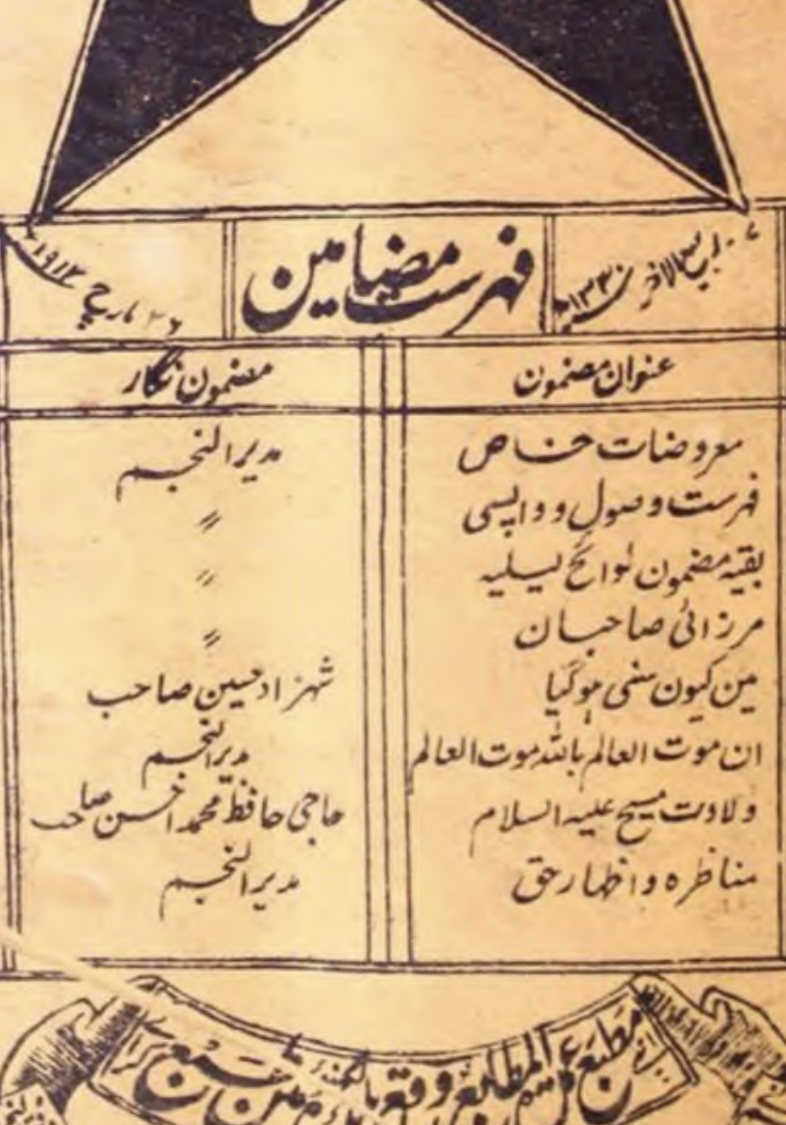 ۷ ربیع الآخر ۱۳۳۰ھ
فہرست مضامین
۲۶ مارچ ۱۹۱۲ء
عنوان مضمون
مضمون نگار
معروضات خاص
مدیر النجم
فہرست وصول و واپسی
〃
بقیہ مضمون لوائح لیلیہ
〃
مرزائی صاحبان
〃
مین کیون سنی ہوگیا
شہزاد حسین صاحب
ان موت العالم باللہ موت العالم
مدیر النجم
ولادت مسیح علیہ السلام
حاجی حافظ محمد احسن صاحب
مناظرہ و اظہار حق
مدیر النجم
مطبع عمدۃ المطابع واقع لکھنؤ